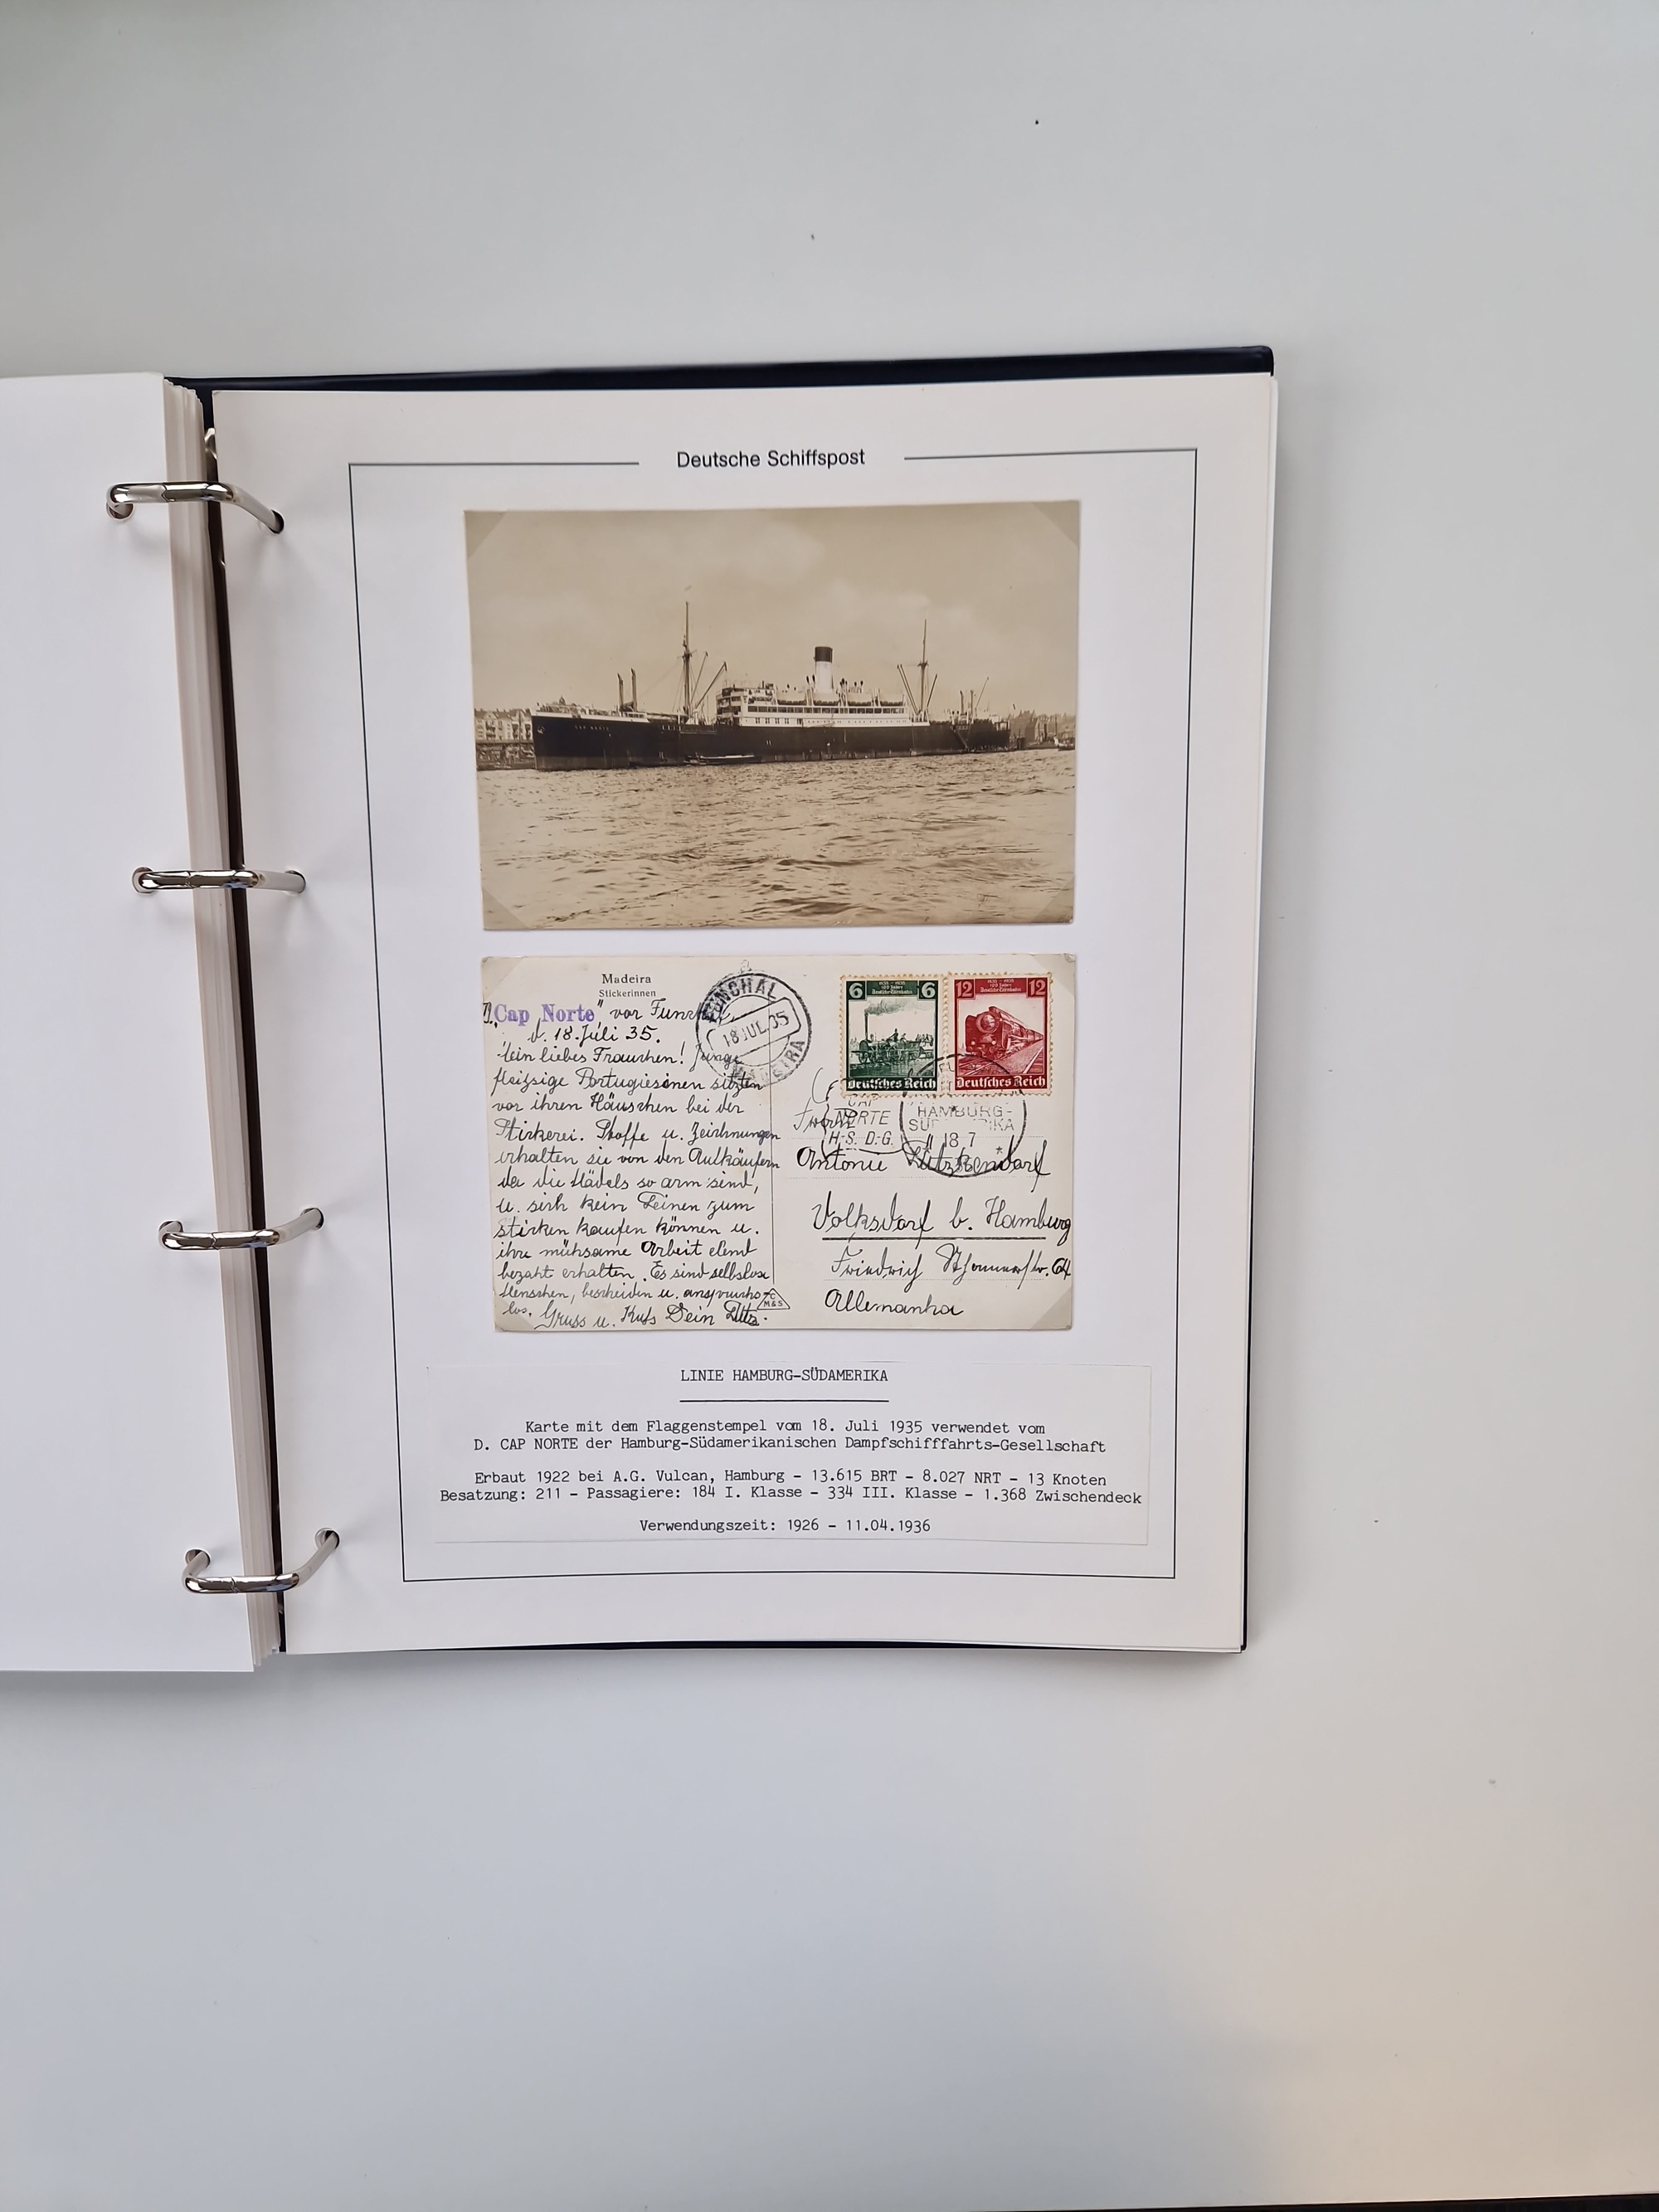 Deutsche Schiffspost
CAP NORTE
Madeira
Stickerinnen
D. „Cap Norte" vor Funchal,
d. 18. Juli 35.
Mein liebes Frauchen! Junge
fleißige Portugiesinen sitzen
vor ihren Häuschen bei der
Stickerei. Stoffe u. Zeichnungen
erhalten sie von den Aufkäufern
da die Mädels so arm sind,
u. sich kein Leinen zum
sticken kaufen können u.
ihre mühsame Arbeit elend
bezahlt erhalten. Es sind selbslose
Menschen, bescheiden u. anspruchs-
los. Gruss u. Kuss Dein
C
M&S
FUNCHAL
18 JUL 35
6 6
1835-1935
100 Jahre
Deutsche Eisenbahn
Deutsches Reich
12 12
1835-1935
100 Jahre
Deutsche Eisenbahn
Deutsches Reich
CAP
NORTE
H.-S. D.-G.
HAMBURG-
SÜDAMERIKA
18 7
Antonie
Volksdorf b. Hamburg
Friedrich 64
Allemanha
LINIE HAMBURG-SÜDAMERIKA
Karte mit dem Flaggenstempel vom 18. Juli 1935 verwendet vom
D. CAP NORTE der Hamburg-Südamerikanischen Dampfschifffahrts-Gesellschaft
Erbaut 1922 bei A.G. Vulcan, Hamburg - 13.615 BRT - 8.027 NRT - 13 Knoten
Besatzung: 211 - Passagiere: 184 I. Klasse - 334 III. Klasse - 1.368 Zwischendeck
Verwendungszeit: 1926 - 11.04.1936